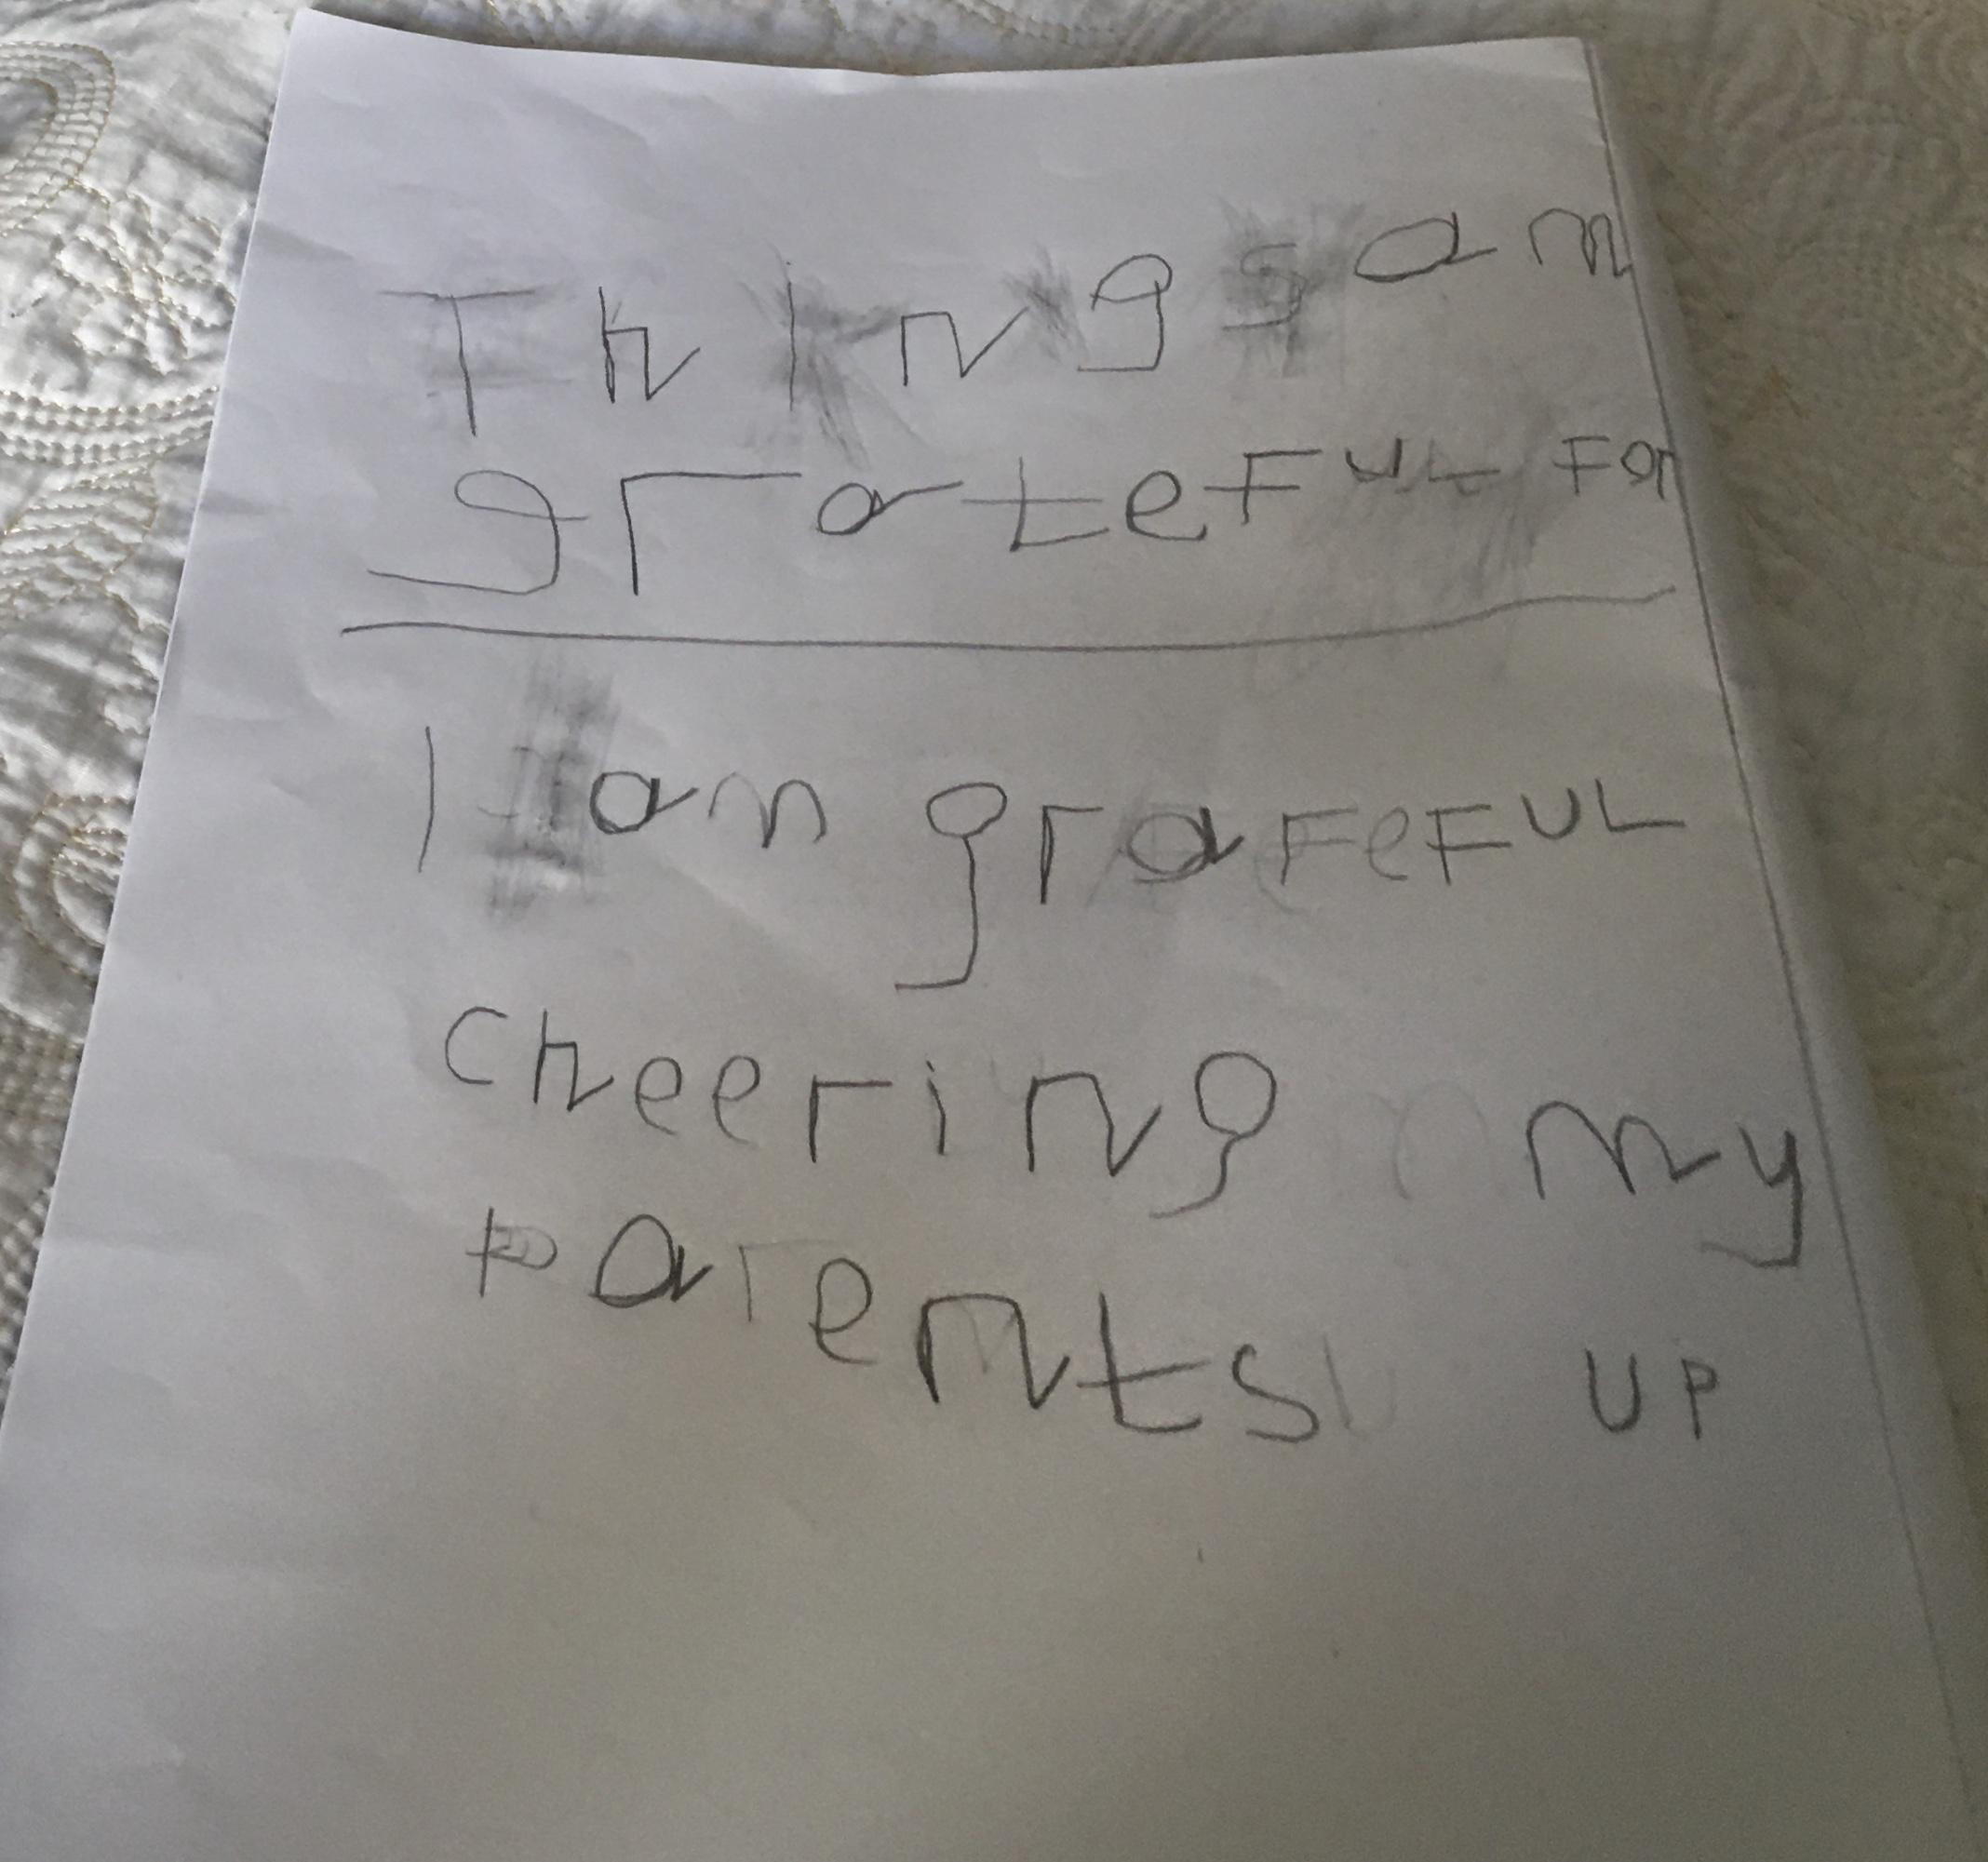 Things am
grateFUL For
I am graFeFUL
cheering my
parents UP